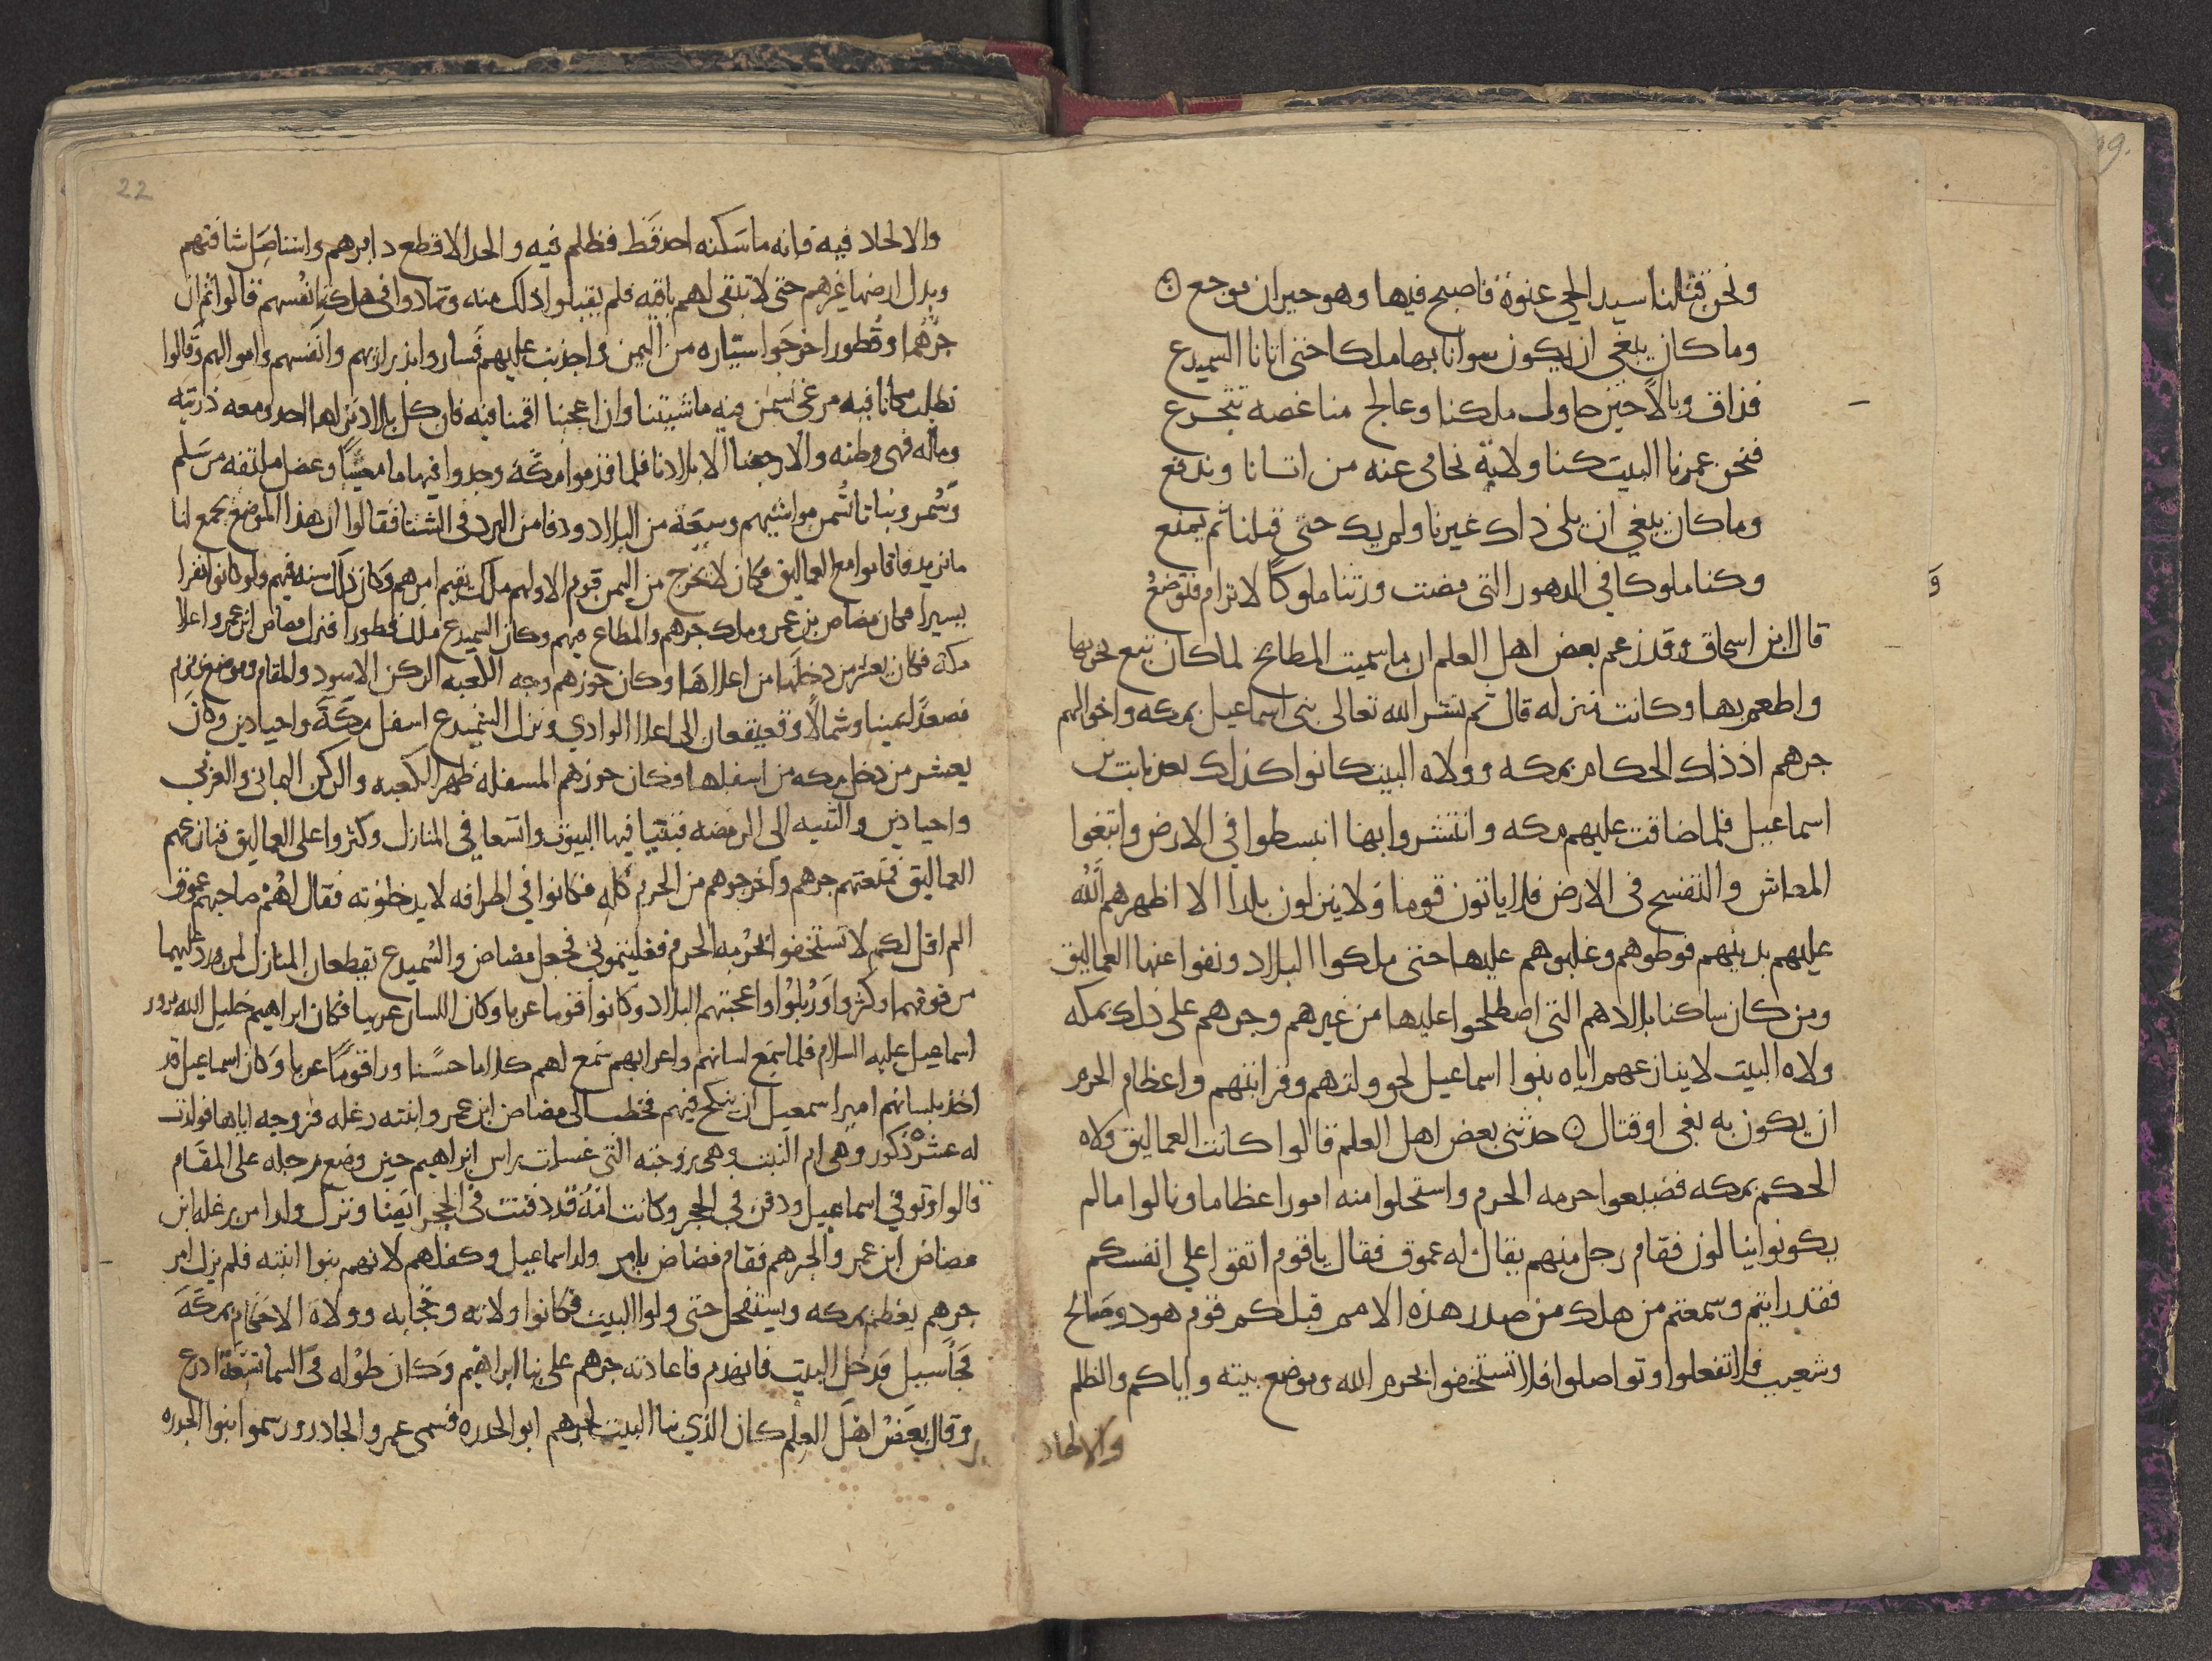 ونحن قتلنا سيد الحي عنوة فاصبح فيها وهو حيران موجع
وما كان يبغي ان يكون سوانا بها ملكا حتى اتانا السميدع
فذاق وبالا حين حاول ملكنا وعالج منا غصه تتجرع
فنحن عمرنا البيت كنا ولاته نحامي عنه من اتانا وندفع
وما كان يبغي ان يلي ذاك غيرنا ولم يك حتى قبلنا ثم يمنع
وكنا ملوكا في الدهور التي مضت ورثنا ملوكا لا ترام فتوضع
قال ابن اسحاق وقد زعم بعض اهل العلم ان ما سميت المطابخ لما كان تبع نحر بها
واطعم بها وكانت منزله قال ثم نشر الله تعالى بنى اسماعيل بمكه واخوالهم
جرهم اذ ذاك الحكام بمكه وولاه البيت كانوا كذلك بعد نابت بن
اسماعيل فلما ضاقت عليهم مكه وانتشروا بها انبسطوا في الارض وابتغوا
المعاش والتفسح في الارض فلا ياتون قوما ولا ينزلون بلدا الا اظهرهم الله
عليهم بدينهم فوطوهم وغلبوهم عليها حتى ملكوا البلاد ونفوا عنها العماليق
ومن كان ساكنا بلادهم التي اصطلحوا عليها من غيرهم وجرهم على ذلك بمكه
ولاه البيت لا ينازعهم اياه بنوا اسماعيل لحوولتهم وقرابتهم واعظام الحرم
ان يكون به بغى او قتال حدثنى بعض اهل العلم قالوا كانت العماليق ولاه
الحكم بمكه فضيعوا حرمه الحرم واستحلوا منه امورا عظاما ونالوا ما لم
يكونوا ينالون فقام رجل منهم يقال له عموق فقال يا قوم اتقوا على انفسكم
فقد رايتم وسمعتم من هلك من صدر هذه الامم قبلكم قوم هود وصالح
وشعيب فلا تفعلوا وتواصلوا فلا تستخفوا بحرم الله وموضع بيته واياكم والظلم
والالحاد
22
والالحاد فيه فانه ما سكنه احد قط فظلم فيه والحد الا قطع دابرهم واستاصل شافتهم
وبدل ارضها غيرهم حتى لا تبقى لهم باقيه فلم يقبلوا ذلك منه وتمادوا في هلكه انفسهم قالوا ثم ان
جرهما وقطورا خرجوا سياره من اليمن واجدبت عليهم فساروا بذراريهم وانفسهم واموالهم وقالوا
نطلب مكانا فيه مرعى تسمن فيه ماشيتنا وان اعجبنا اقمنا فيه فان كل بلاد ينزلها احد ومعه ذريته
وماله فهى وطنه والا رجعنا الا بلادنا فلما قدموا مكة وجدوا فيها ما معينا وعضاه ملتفه من سلم
وسمر ونباتا تسمن مواشيهم وسعه من البلاد ودفا من البرد في الشتا فقالوا ان هذا الموضع يجمع لنا
ما نريد فاقاموا مع العماليق وكان لا يخرج من اليمن قوم الا ولهم ملك يقيم امرهم وكان ذلك سنه فيهم ولو كانوا نفرا
يسيرا فكان مضاض بن عمرو ملك جرهم والمطاع فيهم وكان السميدع ملك قطورا فنزل مضاض ابن عمرو اعلا
مكه فكان يعشر من دخلها من اعلاها وكان حوزهم وجه الكعبه الركن الاسود والمقام وموضع زمزم
مصعدا يمينا وشمالا وقعيقعان الى اعلا الوادي ونزل السميدع اسفل مكة واجيادين وكان
يعشر من دخل مكه من اسفلها وكان حوزهم المسفله ظهر الكعبه والركن اليماني والغربي
واجيادين والثنيه الى الرمضه فبنيا فيها البيوت واتسعا في المنازل وكثروا على العماليق فنازعتهم
العماليق فمنعتهم جرهم واخرجوهم من الحرم كله فكانوا في اطرافه لا يدخلونه فقال لهم صاحبهم عموق
الم اقل لكم لا تستخفوا بحرمه الحرم فغلبتموني فجعل مضاض والسميدع يقطعان المنازل لمن ورد عليهما
من قومهما وكثروا وربلوا واعجبتهم البلاد وكانوا قوما عربا وكان اللسان عربيا فكان ابراهيم خليل الله يزور
اسماعيل عليه السلام فلما سمع لسانهم واعرابهم سمع لهم كلاما حسنا وراى قوما عربا وكان اسماعيل قد
اخذ بلسانهم امر اسمعيل ان ينكح فيهم فخطب الى مضاض ابن عمرو ابنته رعله فزوجه اياها فولدت
له عشره ذكور وهي ام البيت وهي زوجته التي غسلت راس ابراهيم حين وضع رجله على المقام
قالوا وتوفي اسماعيل ودفن في الحجر وكانت امه قد دفنت في الحجر ايضا وترك ولدا من رعله ابنت
مضاض ابن عمرو الجرهم فقام مضاض بامر ولد اسماعيل وكفلهم لانهم بنوا ابنته فلم يزل امر
جرهم يعظم بمكه ويستفحل حتى ولوا البيت فكانوا ولاته وحجابه وولاة الاحكام بمكة
فجا سيل فدخل البيت فانهدم فاعادته جرهم على بنا ابراهيم وكان طوله في السما تسعة ادرع
وقال بعض اهل العلم كان الذي بنا البيت لجرهم ابو الجدره فسمى عمرو الجادر وسموا بنوا الجدره